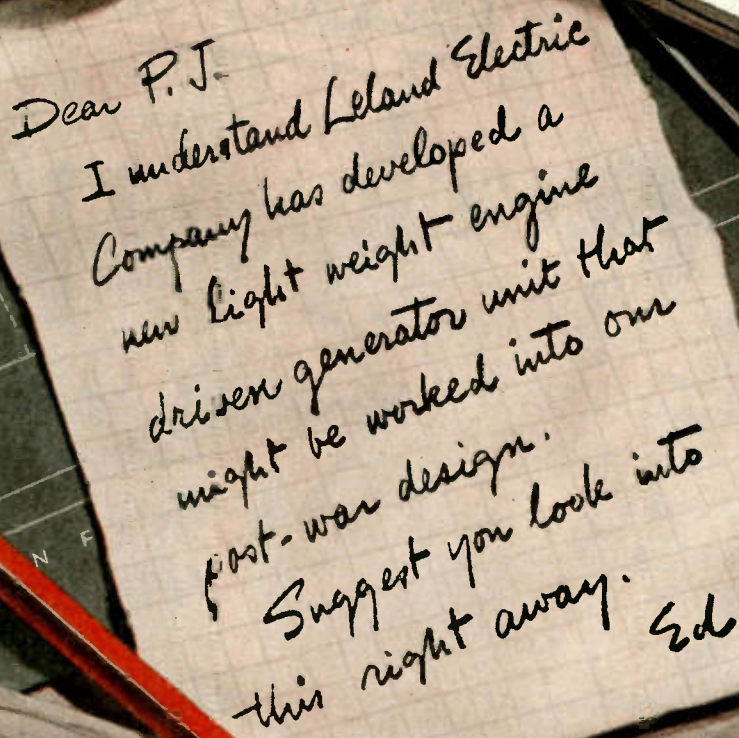 Dear P.J.
I understand Leland Electric
Company has developed a
new light weight engine
driven generator unit that
might be worked into our
post-war design.
Suggest you look into
this right away.
Ed
N F